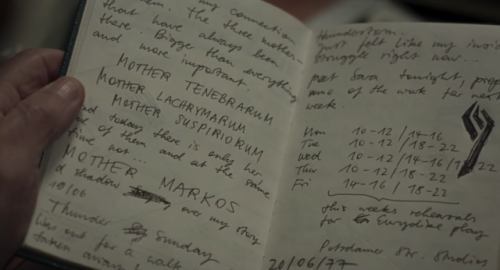 my connection
them. The three mothers
that have always been
there. Bigger than everything
and more important.
MOTHER TENEBRARUM
MOTHER LACHRYMARUM
MOTHER SUSPIRIORUM
and today there is only
of them and at the same
time not...
MOTHER MARKOS
shadows over my story
19/06
Thunder Sunday
like out for a walk
taken away
thunderstorm.
Just felt like my
struggle right now...
past Sara tonight
some of the work for next
week.
Mon 10-12 / 14-16
Tue 10-12 / 18-22
Wed 10-12 / 14-16 / 22
Thur 10-12 / 18-22
Fri 14-16 / 18-22
this weeks rehearsals
for Eurydice play
Potsdamer Str. Studios
20/06/77